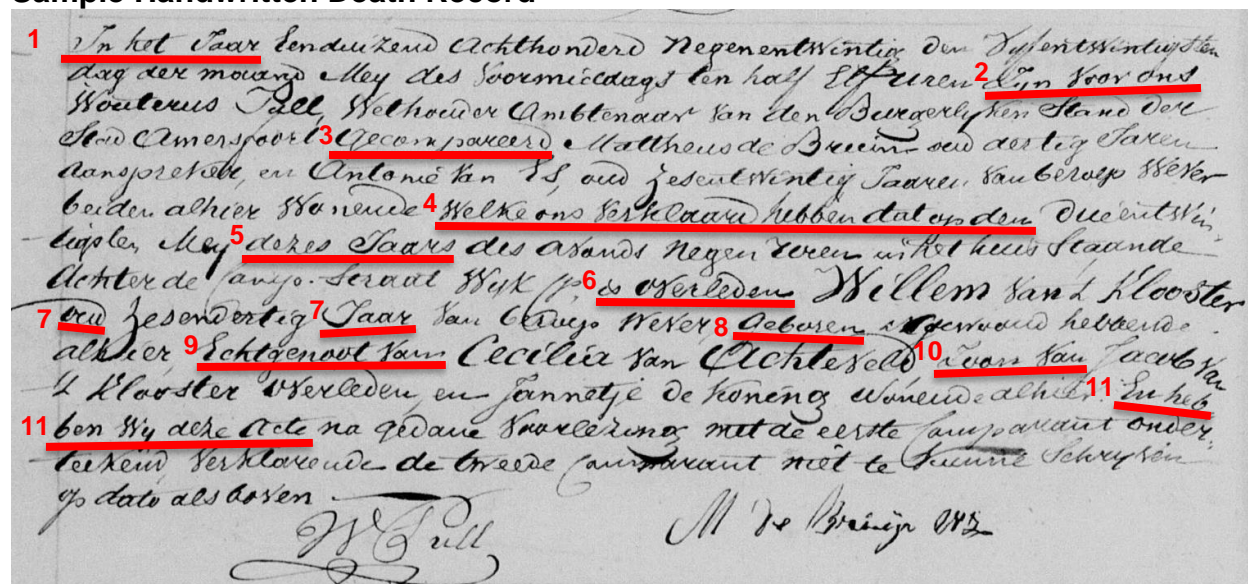 Sample Handwritten Death Record
1 In het Jaar Eenduizend Achthonderd Negenentwintig den Vyfentwintigsten
dag der maand Mey des Voormiddags ten half Elf uren 2 Zyn Voor ons
Wouterus Pull, Wethouder Ambtenaar Van den Burgerlyken Stand der
Stad Amersfoort 3 Gecompareerd Mattheus de Bruin oud dertig Jaren
Aanspreker, en Antonie Van ES, oud Zesentwintig Jaaren Van beroep Wever
beiden alhier Wonende 4 Welke ons Verklaard hebben dat op den Drieentwin-
tigsten Mey 5 dezes Jaars des avonds Negen Uren in het huis Staande
Achter de Straat Wyk 6 is Overleden Willem Van 't Klooster
7 oud Zesendertig 7 Jaar Van beroep Wever, 8 Geboren gewoond hebbende
alhier, 9 Echtgenoot Van Cecilia Van Achteveld 10 Zoon Van Jacob Van
't Klooster Overleden, en Jannetje de Koning Wonende alhier 11 En heb
11 ben Wy deze Acte na gedane Voorlezing met de eerste Comparant onder-
teekend Verklarende de tweede Comparant niet te kunne Schryven
op dato als boven
W Pull M de Bruijn